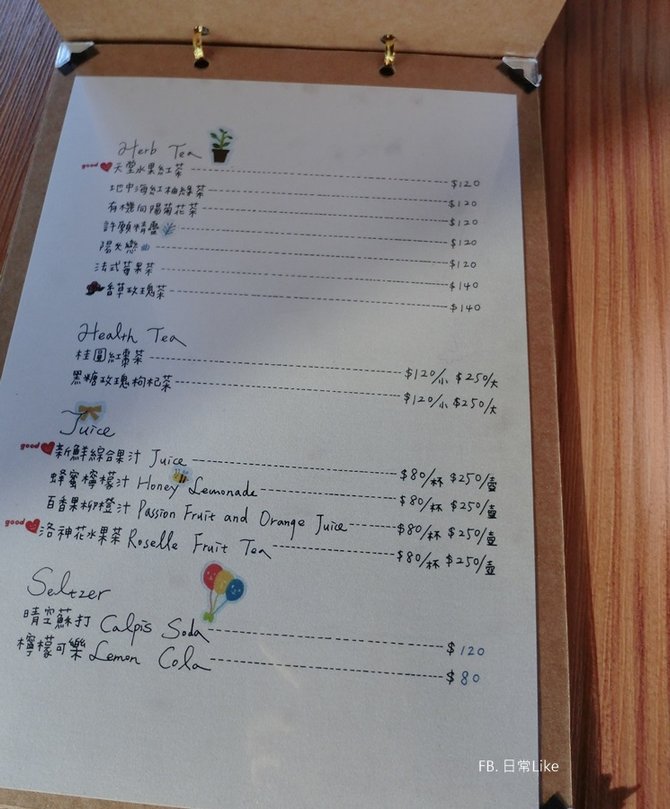 Herb Tea
good 天堂水果紅茶 $120
地中海紅柚綠茶 $120
有機向陽菊花茶 $120
許願精靈 $120
陽光戀 $120
法式莓果茶 $140
香草玫瑰茶 $140
Health Tea
桂圓紅棗茶 $120/小 $250/大
黑糖玫瑰枸杞茶 $120/小 $250/大
Juice
good 新鮮綜合果汁 Juice $80/杯 $250/壺
蜂蜜檸檬汁 Honey Lemonade $80/杯 $250/壺
百香果柳橙汁 Passion Fruit and Orange Juice $80/杯 $250/壺
good 洛神花水果茶 Roselle Fruit Tea $80/杯 $250/壺
Seltzer
晴空蘇打 Calpis Soda $120
檸檬可樂 Lemon Cola $80
FB. 日常Like